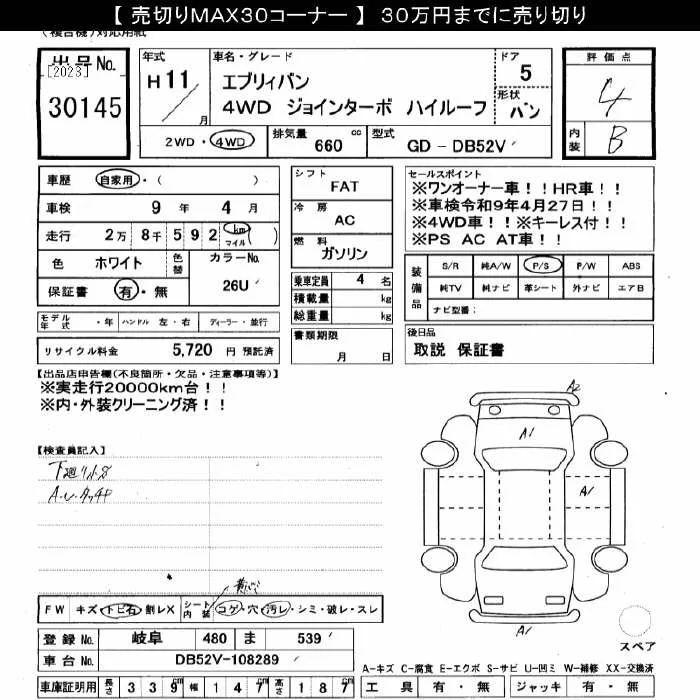 【 売切りMAX30コーナー 】 30万円までに売り切り
(複合機)対応用紙
出品No. 年式 車名・グレード ドア 評価点
[2023] H11 エブリィバン 5 4
30145 月 4WD ジョインターボ ハイルーフ 形状 バン
2WD・4WD 排気量 660 cc 型式 GD-DB52V 内装 B
車歴 自家用・( ) シフト FAT セールスポイント
※ワンオーナー車！！HR車！！
車検 9年 4月 冷房 AC ※車検令和9年4月27日！！
走行 2万 8千 5 9 2 km マイル ( ) ※4WD車！！※キーレス付！！
燃料 ガソリン ※PS AC AT車！！
色 ホワイト 色替 カラーNo. 26U
保証書 有・無
乗車定員 4 名
積載量 kg
総重量 kg
装備品 S/R 純A/W P/S P/W ABS
純TV 純ナビ 革シート 外ナビ エアB
ナビ型番：
モデル年式 ・年 ハンドル 左・右 ディーラー・並行 書類期限 月 日 後日品
リサイクル料金 5,720 円 預託済 取説 保証書
【出品店申告欄(不良箇所・欠品・注意事項等)】
※実走行20000km台！！
※内・外装クリーニング済！！
A2
A1
【検査員記入】
A1
FW キズ・トビ石・割レX シート内装 コゲ・穴・汚レ・シミ・破レ・スレ
A1
スペア
登録No. 岐阜 480 ま 539
車台No. DB52V-108289
A-キズ C-腐食 E-エクボ S-サビ U-凹ミ W-補修 XX-交換済
車庫証明用 長さ 339 cm 幅 147 cm 高さ 187 cm 工具 有・無 ジャッキ 有・無